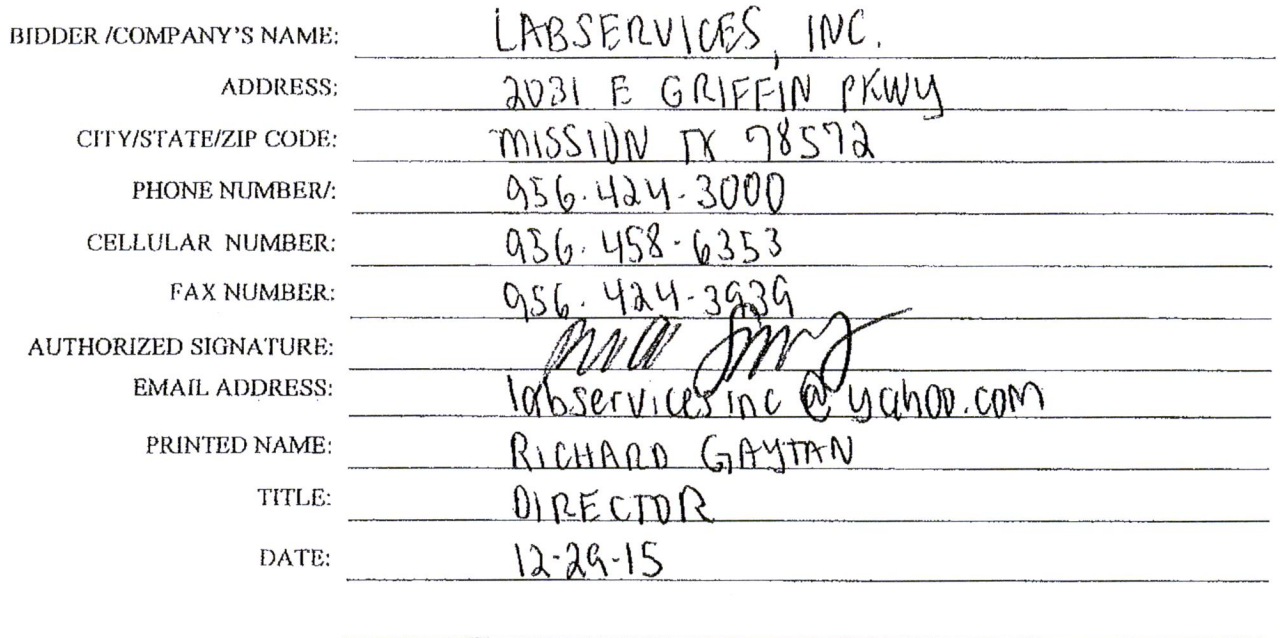 BIDDER /COMPANY'S NAME: LABSERVICES, INC.
ADDRESS: 2031 E GRIFFIN PKWY
CITY/STATE/ZIP CODE: MISSION TX 78572
PHONE NUMBER/: 956.424-3000
CELLULAR NUMBER: 956.458-6353
FAX NUMBER: 956.424-3939
AUTHORIZED SIGNATURE:
EMAIL ADDRESS: labservicesinc@yahoo.com
PRINTED NAME: RICHARD GAYTAN
TITLE: DIRECTOR
DATE: 12-29-15